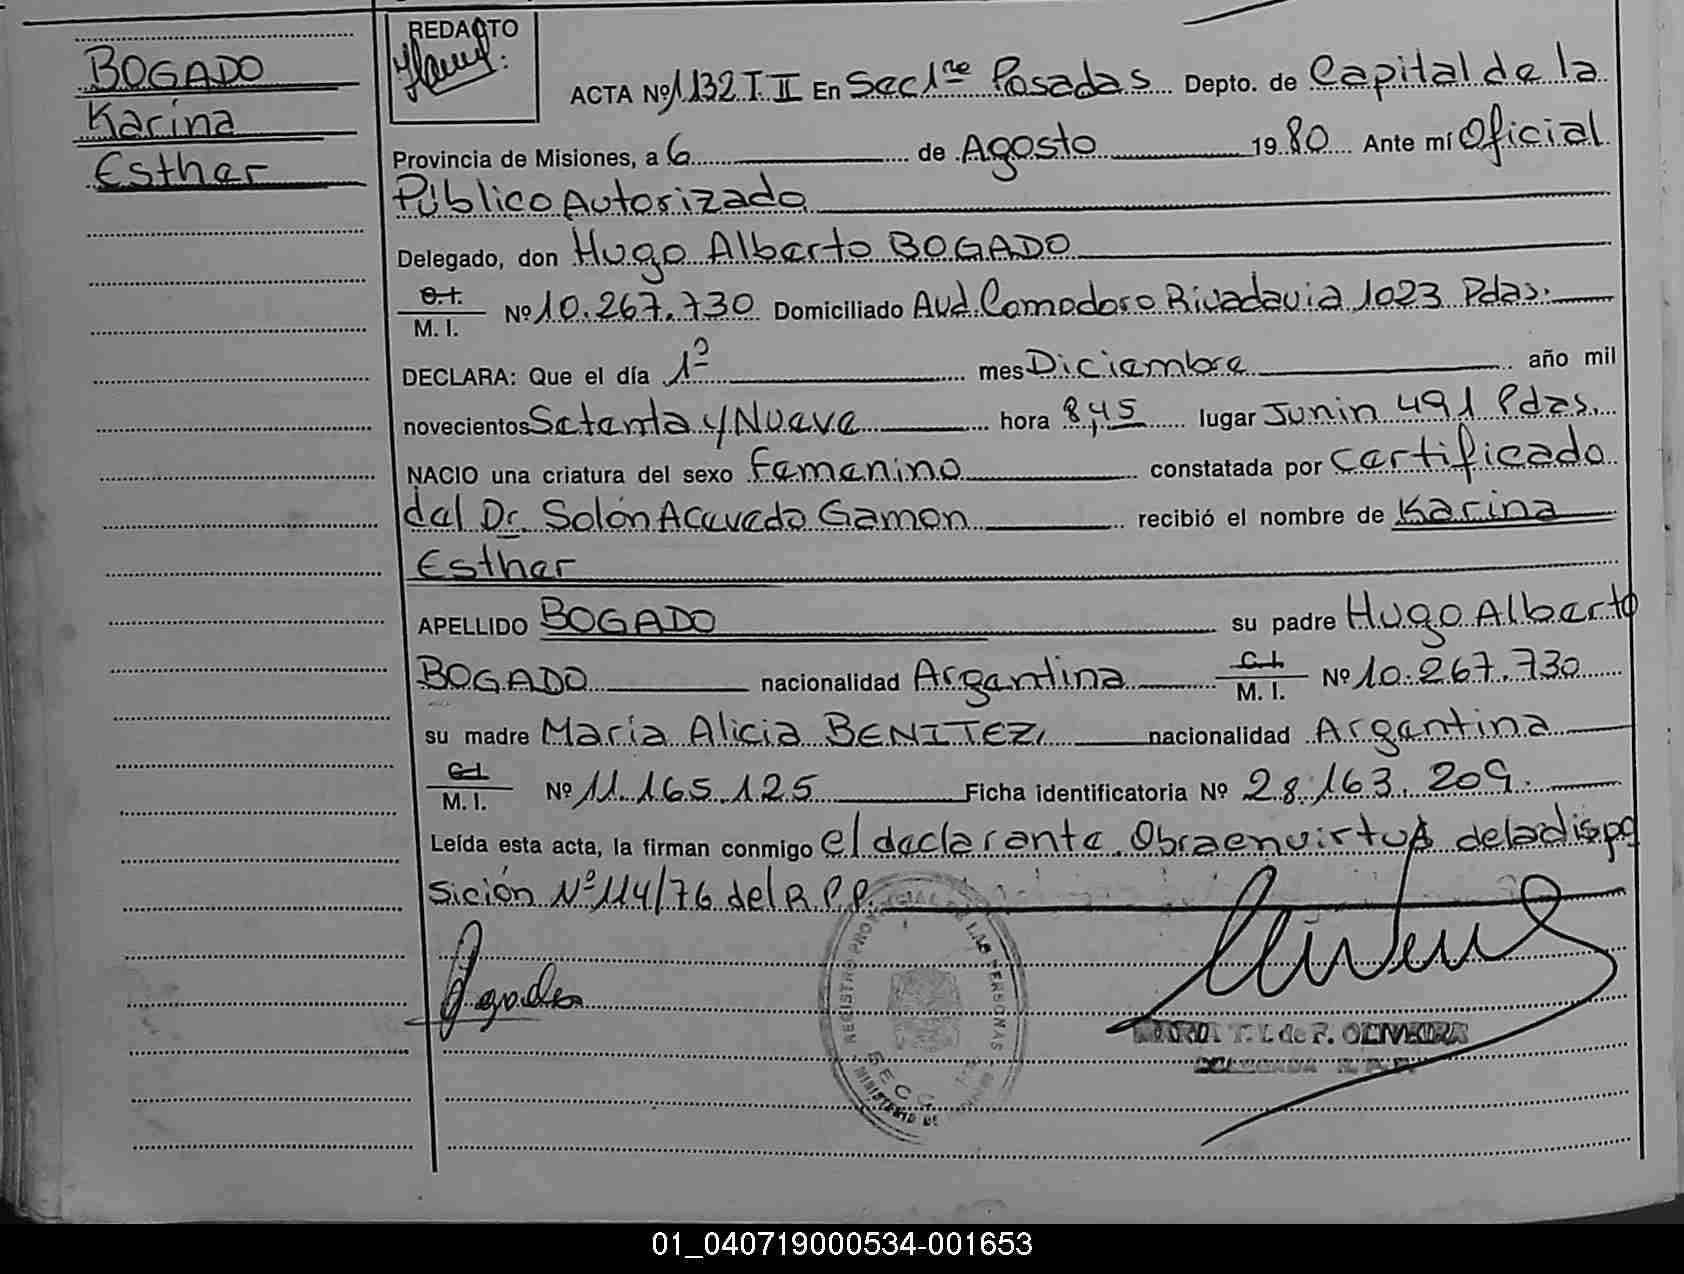 BOGADO
Karina
Esther
REDACTO
ACTA Nº 1132 T. II En Sec 1ra Posadas Depto. de Capital de la
Provincia de Misiones, a 6 de Agosto 1980 Ante mí Oficial
Público Autorizado
Delegado, don Hugo Alberto BOGADO
C.I.
M. I. Nº 10.267.730 Domiciliado Avd. Comodoro Rivadavia 1023 Pdas.
DECLARA: Que el día 1º mes Diciembre año mil
novecientos Setenta y Nueve hora 8,45 lugar Junin 491 Pdas.
NACIO una criatura del sexo Femenino constatada por certificado
del Dr. Solón Acevedo Gamon recibió el nombre de Karina
Esther
APELLIDO BOGADO su padre Hugo Alberto
BOGADO nacionalidad Argentina C.I. M. I. Nº 10.267.730
su madre María Alicia BENITEZ, nacionalidad Argentina
C.I.
M. I. Nº 11.165.125 Ficha identificatoria Nº 28.163.209.
Leída esta acta, la firman conmigo el declarante. Obra en virtud de la dispo
sición Nº 114/76 del R.P.P.
REGISTRO PROVINCIAL DE LAS PERSONAS
MINISTERIO DE
SECC.
MARIA T. I. de F. OLIVEIRA
DELEGADA R. P. P.
01_040719000534-001653